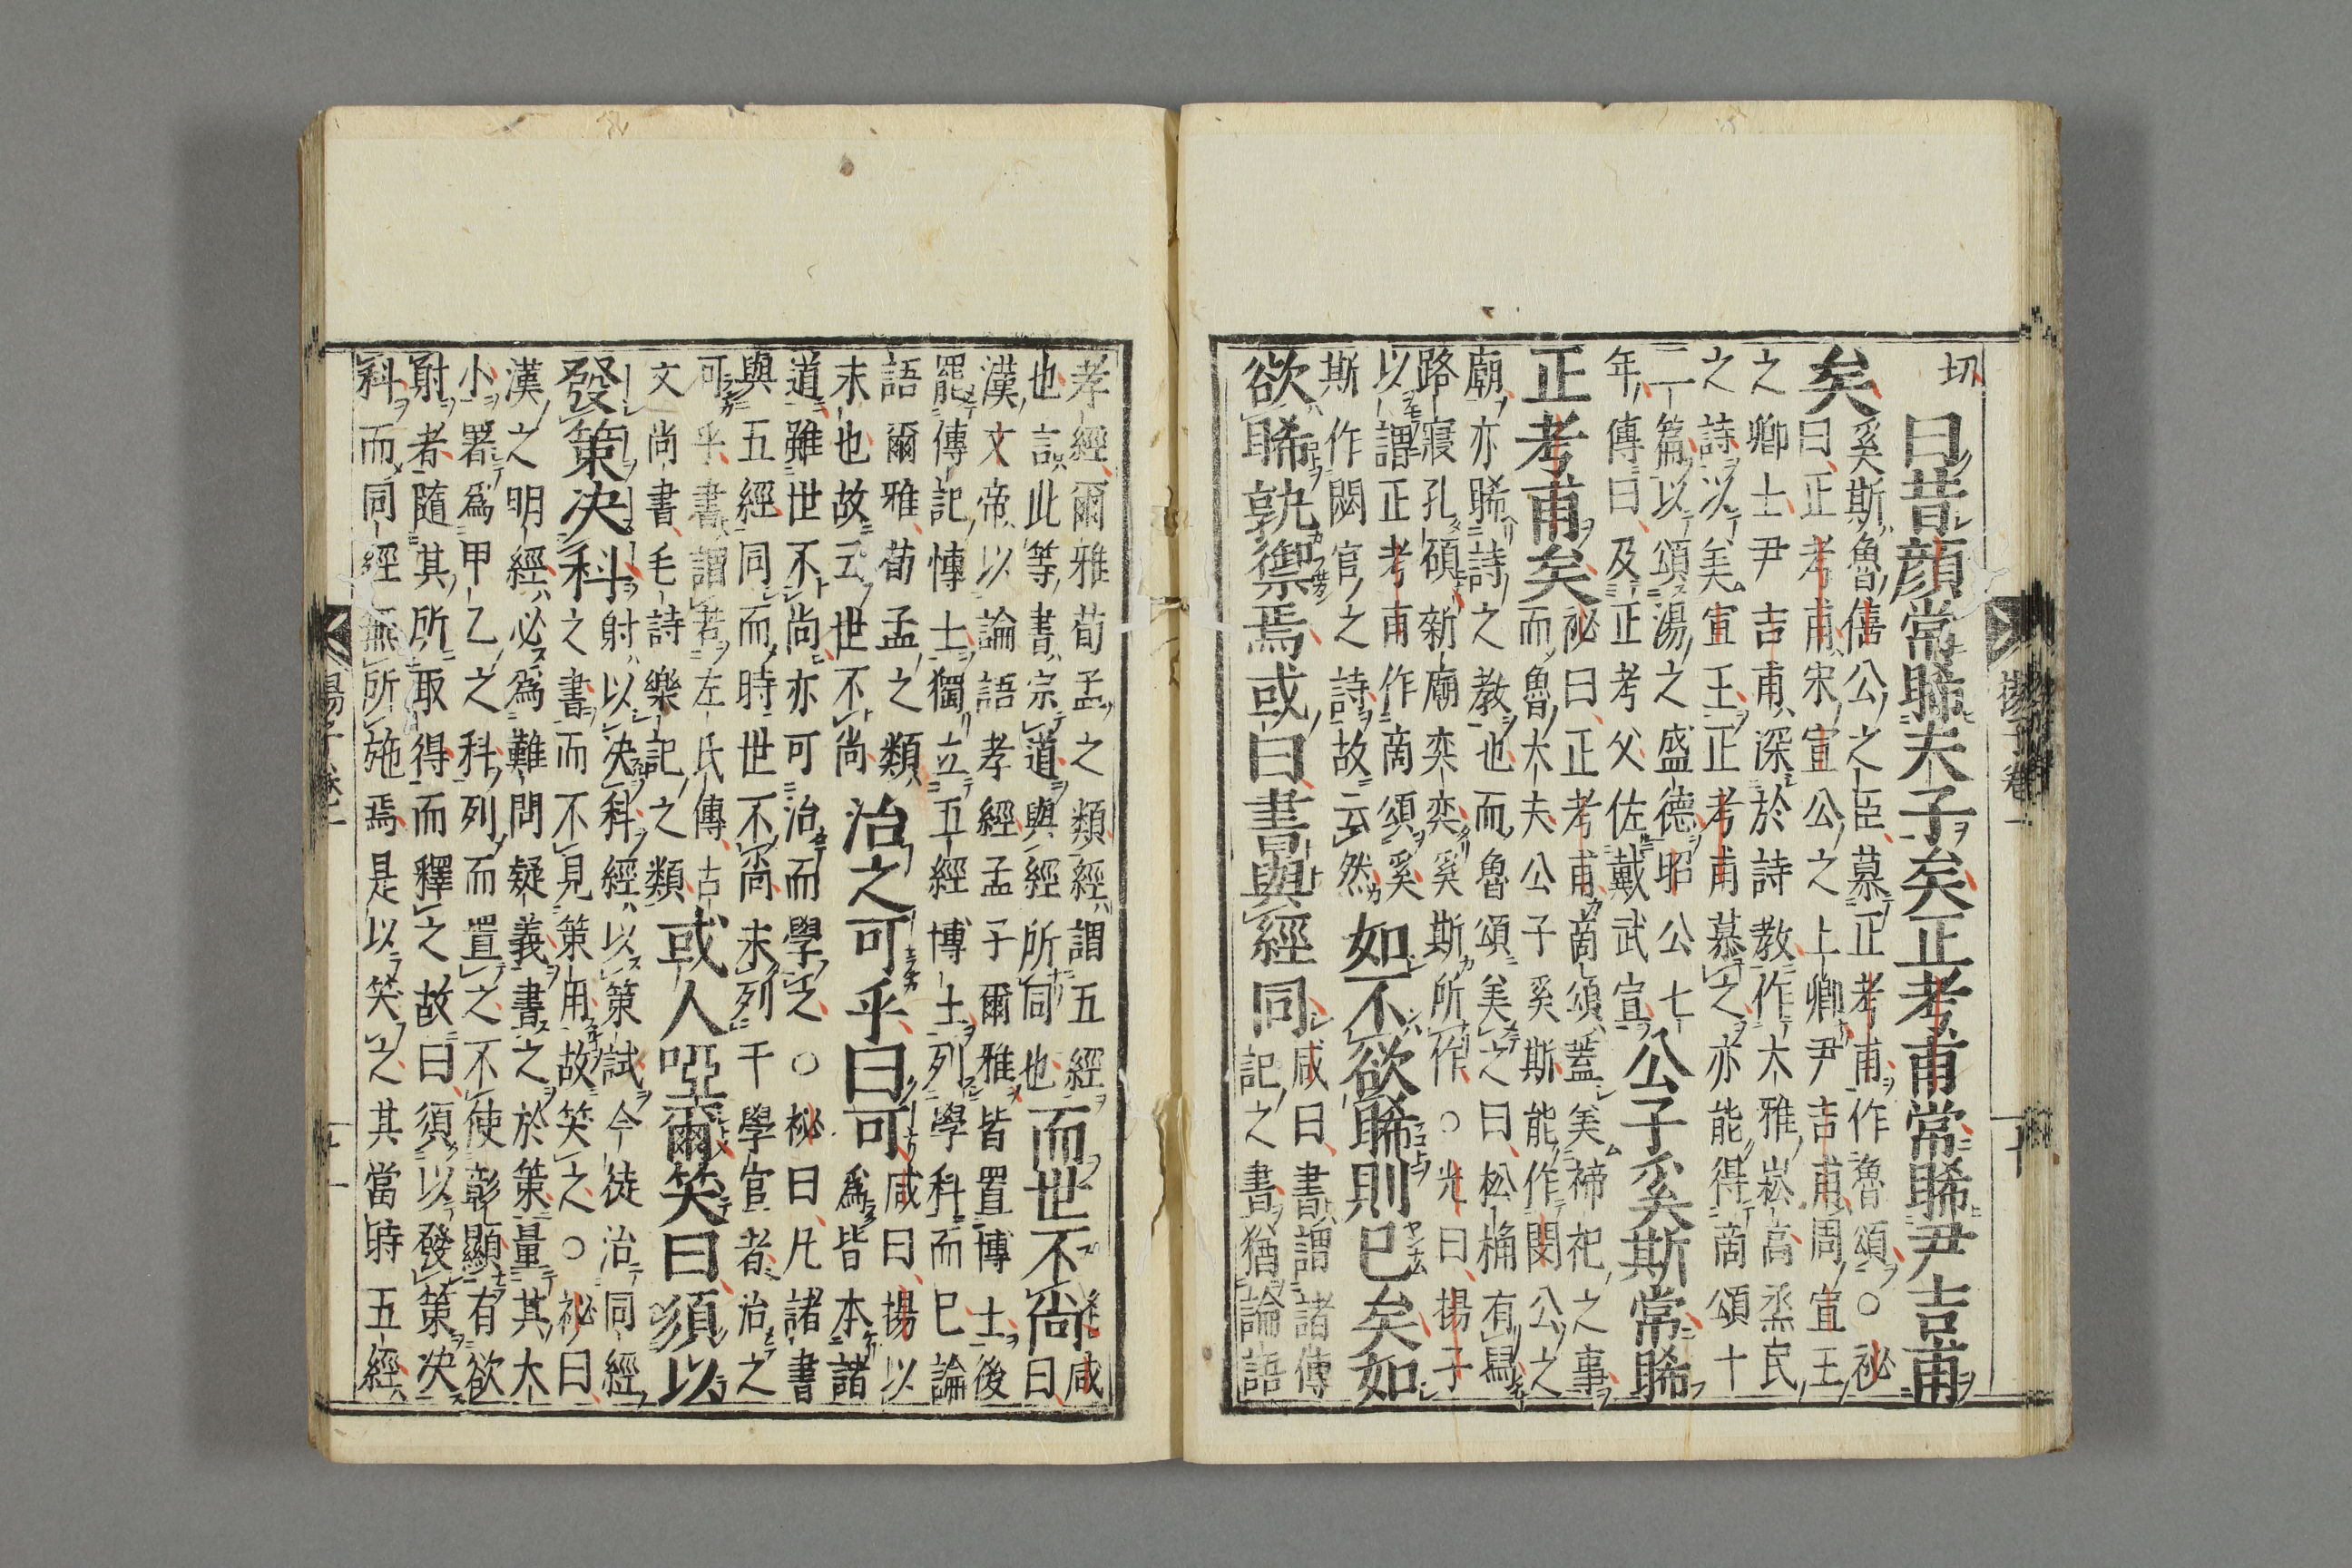 切
曰昔顏常睎夫子矣正考甫常睎尹吉甫
矣奚斯魯僖公之臣慕正考甫作魯頌○祕
曰正考甫宋宣公之上卿尹吉甫周宣王
之卿士尹吉甫深於詩教作大雅崧高烝民
之詩以美宣王正考甫慕之亦能得商頌十
二篇以頌湯之盛德昭公七
年傳曰及正考父佐戴武宣公子奚斯常睎
正考甫矣祕曰正考甫商頌蓋美禘祀之事
而魯大夫公子奚斯能作閟公之
廟亦睎詩之教也而魯頌美之曰松桷有舄
路寢孔碩新廟奕奕奚斯所作○光曰揚子
以謂正考甫作商頌奚
斯作閟官之詩故云然如不欲睎則已矣如
欲睎孰禦焉或曰書與經同咸曰書謂諸傳
記之書猶論語
孝經爾雅荀孟之類經謂五經而世不尚咸
也言此等書宗道與經所同也曰
漢文帝以論語孝經孟子爾雅皆置博士後
罷傳記博士獨立五經博士列學科而已論
語爾雅荀孟之類
末也故云世不尚治之可乎曰可咸曰揚以
爲皆本諸
道雖世不尚亦可治而學之○祕曰凡諸書
與五經同而時世不尚未列于學官者治之
可乎書謂若左氏傳古
文尚書毛詩樂記之類或人啞爾笑曰須以
發策決科射以決科經以策試今徒治同經
之書而不見策用故笑之○祕曰
漢之明經必爲難問疑義書之於策量其大
小署爲甲乙之科列而置之不使彰顯有欲
射者隨其所取得而釋之故曰須以發策決
科而同經無所施焉是以笑之其當時五經
揚子卷一
揚子卷一